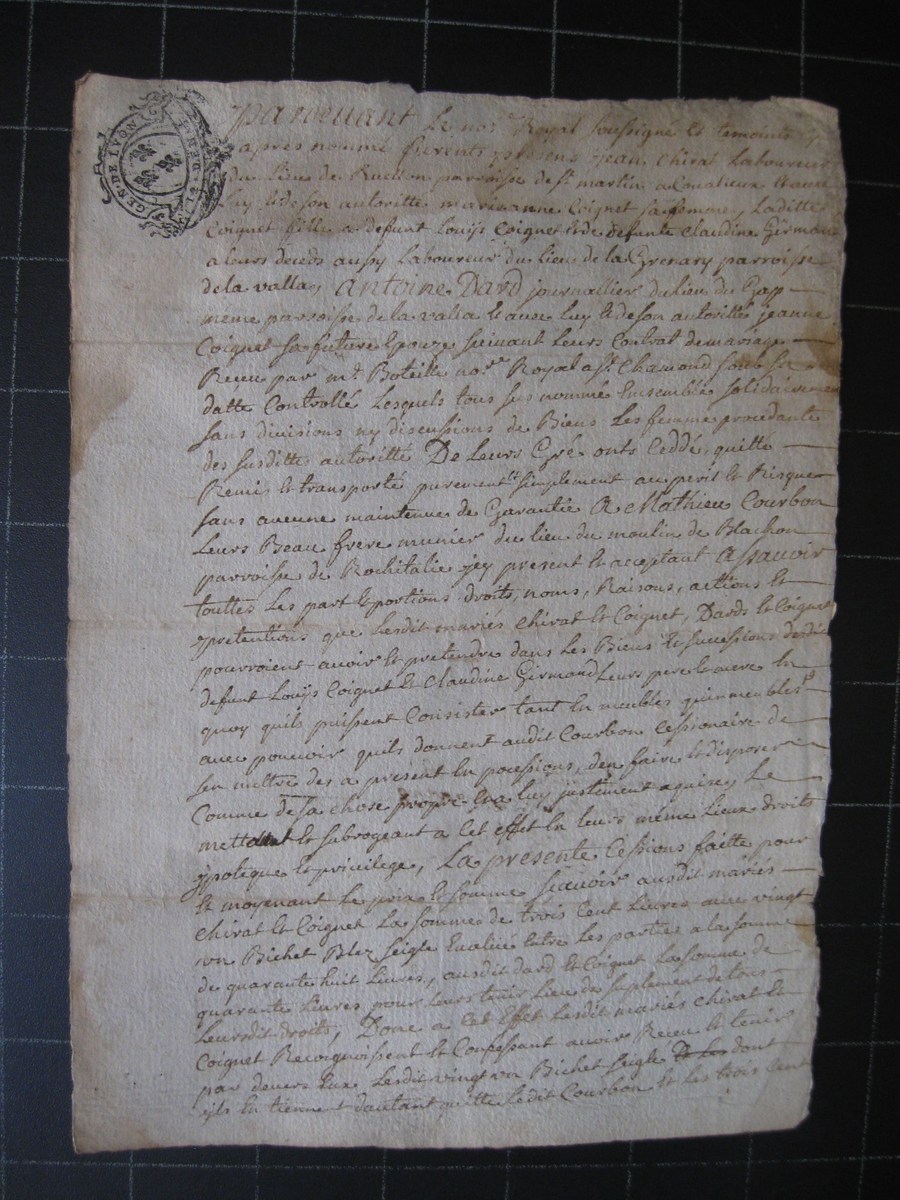 GEN. DE LYON
Pardevant le nore Royal soussigné et temoins
apres nommé furents presens jean chirat Laboureur
du Lieu de parroisse de st martin a Coualieux et avec
luy et de son autoritté marieanne Coignet sa femme, Laditte
Coignet fille a defunt Louijs Coignet et de defunte Claudine Girmond
a leurs deceds aussy Laboureur du lieu de la Grenary parroisse
de la valla, Antoine Dard journallier du lieu du Gap
meme parroisse de la valla et avec luy et de son autoritté jeanne
Coignet sa future Epouze suivant Leurs Contrat de mariage
Receu par me Boteille nore Royal a st Chamond soub sa
datte Controllé Lesquels tous sus nommé Ensemble solidairement
sans divisions ny discussions de Biens Les femme procedante
des susditte autoritté De Leurs Gré onts Ceddé, quitté
Remi et transporté purement et simplement au peril et Risque
sans aucune maintenue de Garantie A Mathieu Courbon
Leurs Beau frere munier du lieu du moulin de Blachon
parroisse de Rochitalie jcy present et acceptant Assavoir
touttes Les part et portions droits, noms, Raisons, actions et
pretentions que Lesdit mariés Chirat et Coignet, Dards et Coignet
pourroient avoir et pretendre dans Les Biens et successions desdit
defunt Louijs Coignet et Claudine Girmond Leurs pere et mere En
quoy quils puissent Consister tant En meubles quinmeubles
avec pouvoir quils donnent audit Courbon Cessionaire de
sen mettre des a present En pocessions, den faire et disposer
Comme de sa chose propre Et a luy justement aquise, Le
mettant et subrogeant a Cet effet En leurs même Lieux droits
ypoteque et privilege, La presente Cessions faitte pour
et moyenant Le prix et somme scavoir ausdit mariés
Chirat et Coignet La somme de trois Cent Livres avec vingt
un Bichet Blez seigle Evalué Entre Les parties a la somme
de quarante huit Livres, ausdit dard et Coignet La somme de
quarante Livres pour Leurs tenir Lieu de suplement de tous
Leursdit droits, Donc a Cet Effet Lesdit mariés Chirat et
Coignet Recognoissent et Confessant avoir Receu et tenir
par devers Eux Lesdit vingt un Bichet seigle dont
ijls En tiennent dautant quitte Ledit Courbon Et Les trois Cent